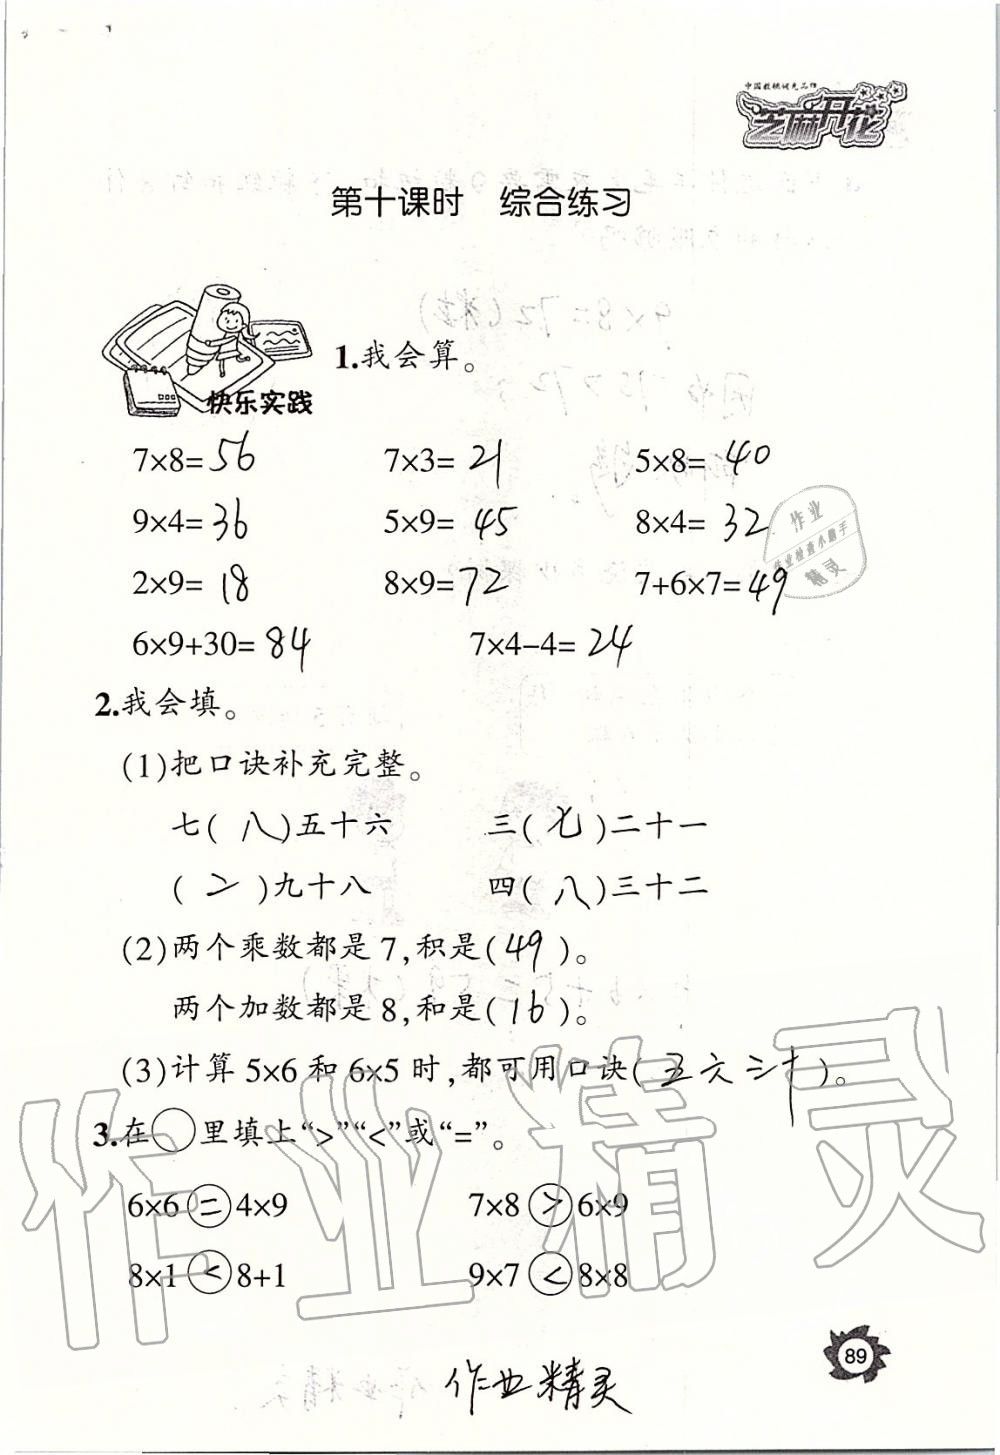 中国教辅领先品牌
芝麻开花
第十课时 综合练习
快乐实践
1.我会算。
7×8=56 7×3=21 5×8=40
9×4=36 5×9=45 8×4=32
2×9=18 8×9=72 7+6×7=49
6×9+30=84 7×4-4=24
2.我会填。
(1)把口诀补充完整。
七(八)五十六 三(七)二十一
(二)九十八 四(八)三十二
(2)两个乘数都是7,积是(49)。
两个加数都是8,和是(16)。
(3)计算5×6和6×5时,都可用口诀(五六三十)。
3.在○里填上“>”“<”或“=”。
6×6=4×9 7×8>6×9
8×1<8+1 9×7<8×8
作业
作业检查小助手
精灵
作业精灵
作业精灵
89